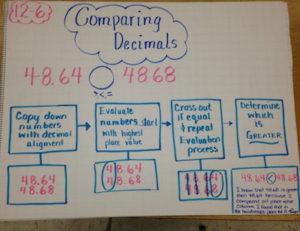 12-6
Comparing
Decimals
48.64 48.68
><=
Copy down
numbers
with decimal
aligment
Evaluate
numbers start
with highest
place value
Cross out
if equal
& repeat
Evaluation
process
Determine
which
is
GREATER
48.64
48.68
48.64
48.68
48.64
48.68
48.64 < 48.68
I know that 48.68 is greater
than 48.64 because I
compared all place value